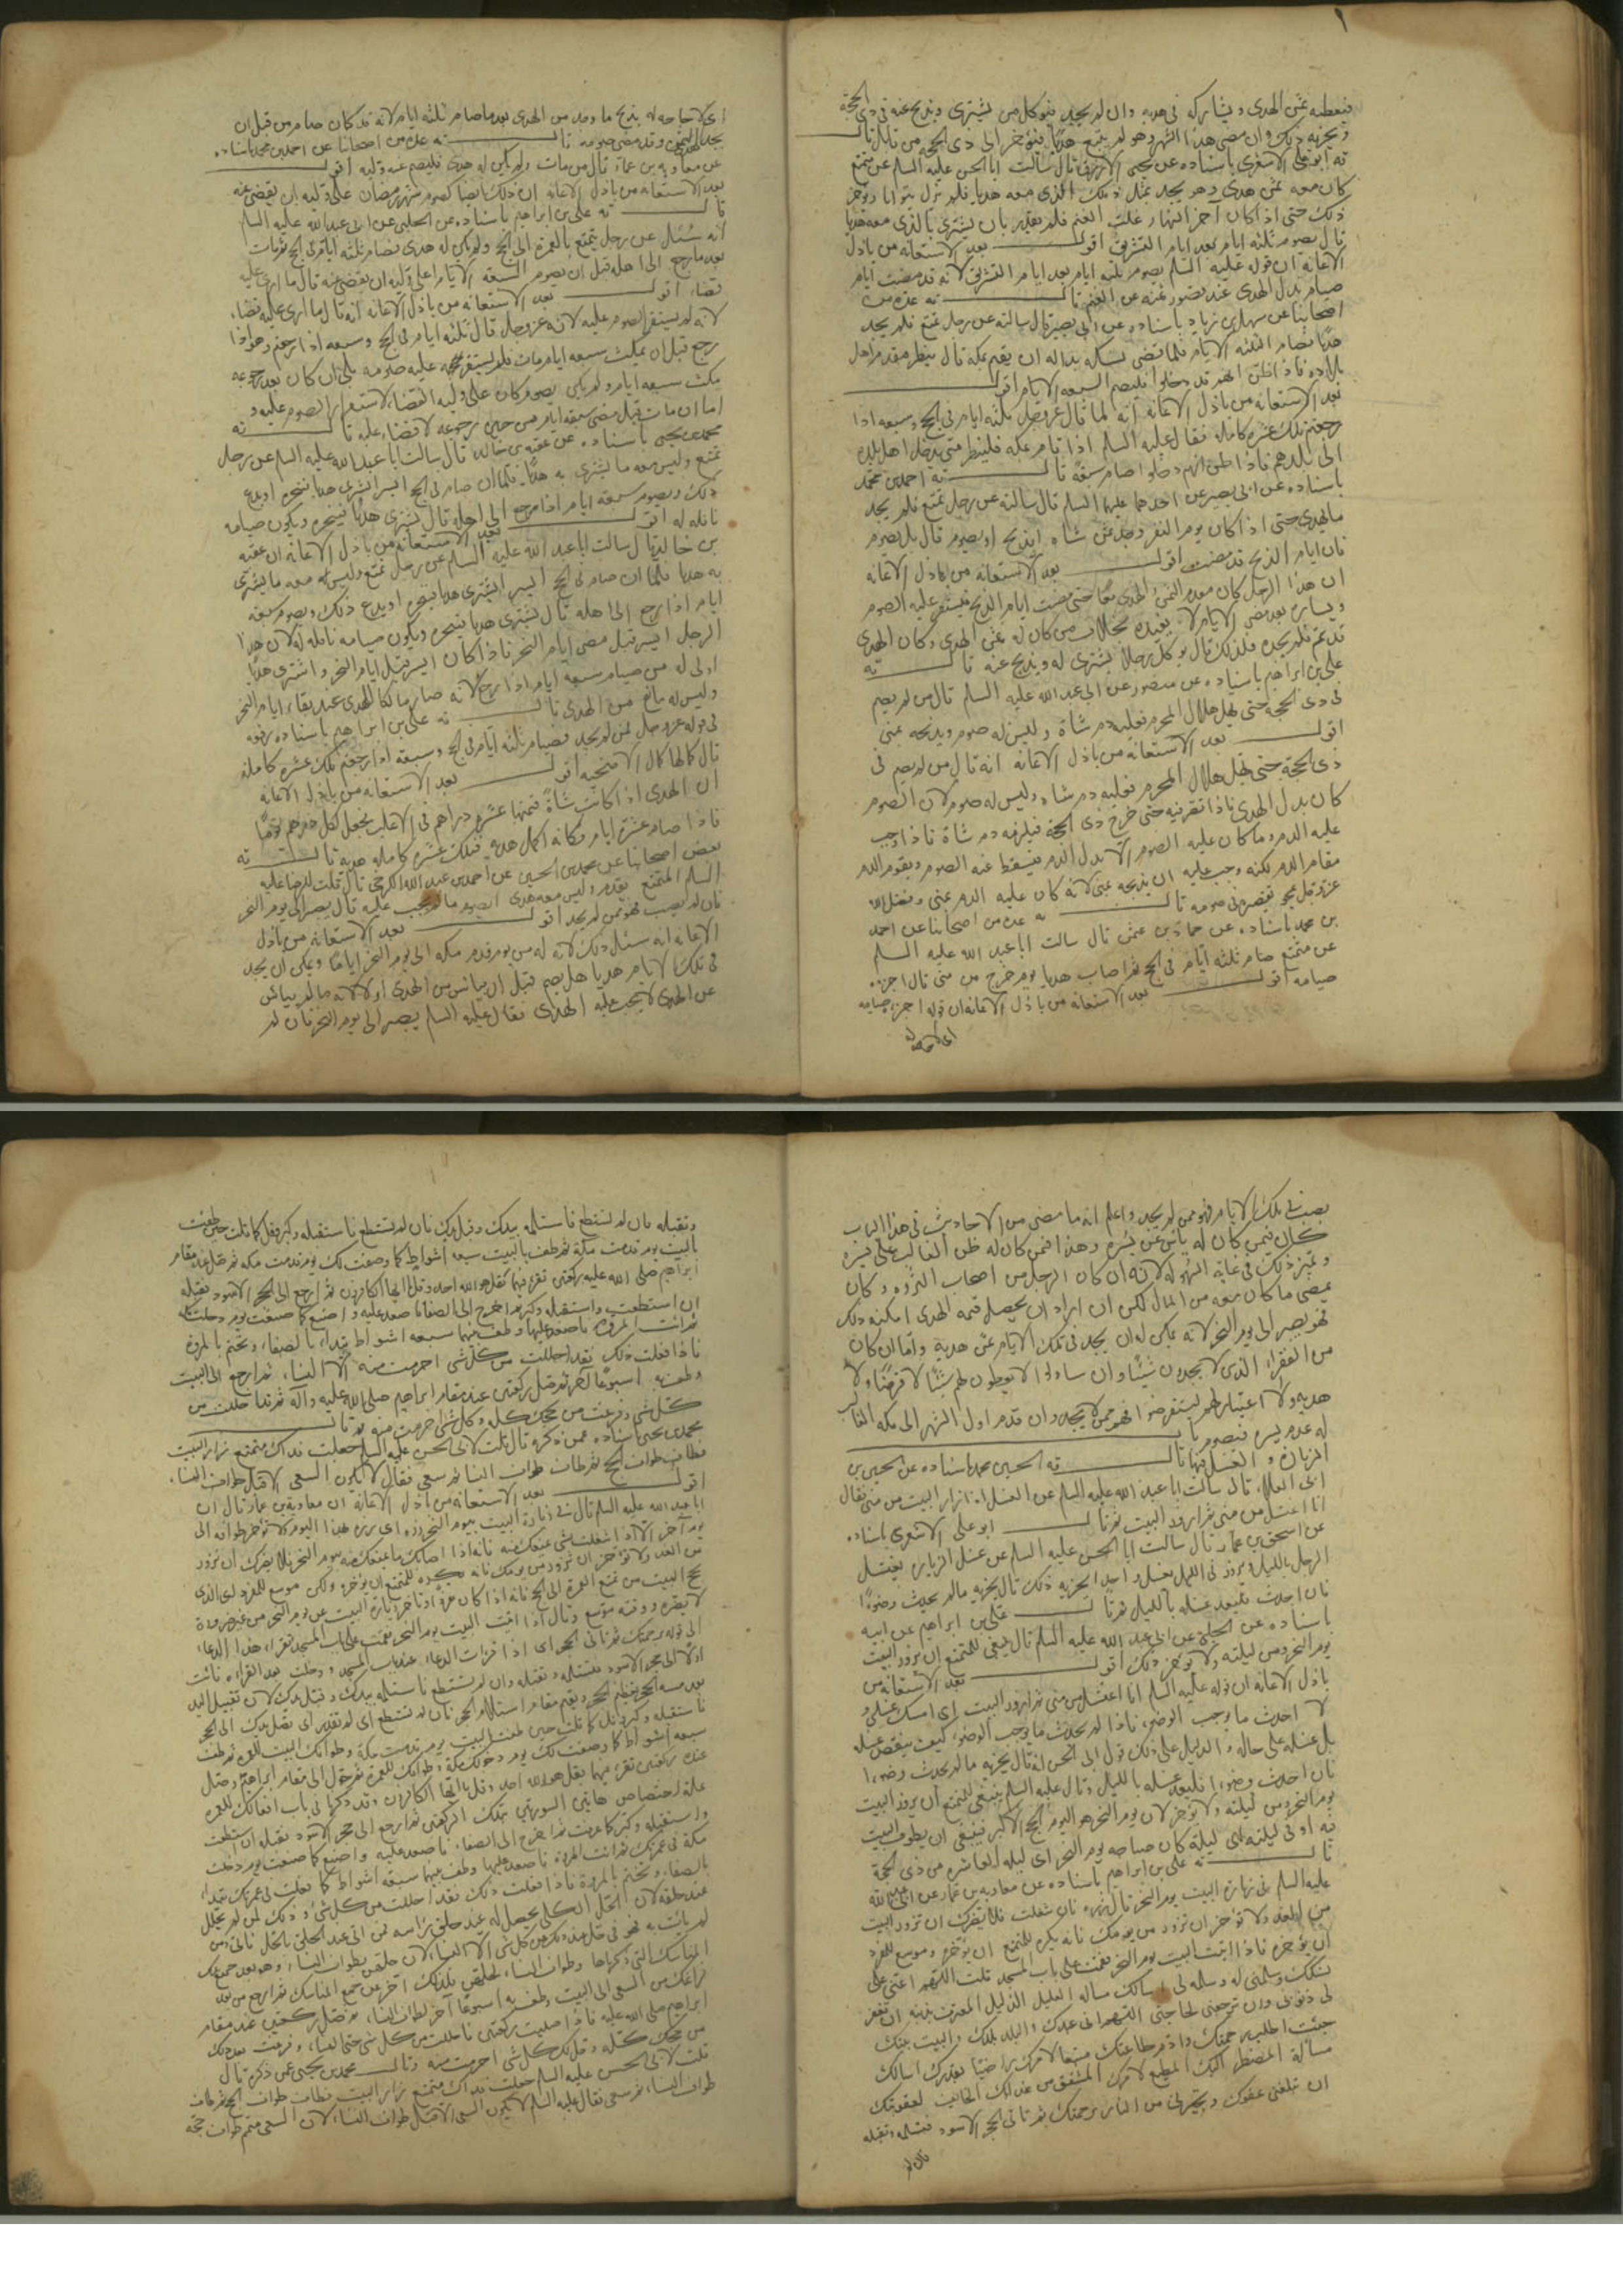 فيعطيه ثمن الهدى ويشاركه في هديه وان لم يجد فيوكل من يشترى ويذبح عنه في ذي الحجة
ويجزيه ذلك وان مضى هذا الشهر وهو لم يتمتع هديا فيؤخر الى ذي الحجة من قابل قال
ثه ابو على الاشعرى باسناده عن يحيى الازرق قال سالت ابا الحسن عليه السلم عن متمتع
كان معه ثمن هدى وهو يجد بمثل ذلك الذى معه هديا فلم يزل يتوانا ويؤخر
ذلك حتى اذا كان آخر النهار غلت الغنم فلم يقدر بان يشترى بالذى معه هديا
قال يصوم ثلثه ايام بعد ايام التشريق اقول بعد الاستعانه من باذل
الاعانه ان قوله عليه السلم يصوم ثلثه ايام بعد ايام التشريق لانه قد مضت ايام
صيام بدل الهدى عند قصور ثمنه عن الغنم قال ثه عده من
اصحابنا عن سهل بن زياد باسناده عن ابى بصير قال سالته عن رجل تمتع فلم يجد
هديا فصام الثلثه الايام فلما قضى نسكه بدا له ان يقيم بمكه قال ينظر مقدم اهل
بلاده فاذا ظن انهم قد دخلوا فليصم السبعه الايام اقول
بعد الاستعانه من باذل الاعانه انه لما قال عز وجل ثلثه ايام في الحج وسبعه اذا
رجعتم تلك عشره كامله فقال عليه السلم اذا قام بمكه فلينظر متى يدخل اهل بلده
الى بلدهم فاذا ظن انهم دخلوا صام سبعة قال ثه احمد بن محمد
باسناده عن ابى بصير عن احدهما عليهما السلم قال سالته عن رجل تمتع فلم يجد
ما يهدى حتى اذا كان يوم النفر وجد ثمن شاه ايذبح او يصوم قال بل يصوم
فان ايام الذبح قد مضت اقول بعد الاستعانه من باذل الاعانه
ان هذا الرجل كان معدم الثمن والهدى معا حتى مضت ايام الذبح فيستقر عليه الصوم
ويساره بعد مضى الايام لا يفيده بخلاف من كان له ثمن الهدى وكان الهدى
قد عز فلم يجده فلذلك قال يوكل رجلا يشترى له ويذبح عنه قال ثه
على بن ابراهيم باسناده عن منصور عن ابى عبد الله عليه السلم قال من لم يصم
في ذي الحجة حتى يهل هلال المحرم فعليه دم شاة وليس له صوم ويذبحه بمنى
اقول بعد الاستعانه من باذل الاعانه انه قال من لم يصم في
ذي الحجة حتى يهل هلال المحرم فعليه دم شاه وليس له صوم لان الصوم
كان بدل الهدى فاذا فيه حتى خرج ذى الحجة فيلزمه دم شاة فاذا وجب
عليه الدم وما كان عليه الصوم الا بدل الدم فيسقط عنه الصوم ويقوم الدم
مقام الدم لكنه وجب عليه ان يذبحه بمنى لانه كان عليه الدم بمنى
في صومه قال ثه عده من اصحابنا عن احمد
بن محمد باسناده عن حماد بن عثمن قال سالت ابا عبد الله عليه السلم
عن متمتع صام ثلثه ايام في الحج ثم اصاب هديا يوم خرج من منى قال اجزءه
صيامه اقول بعد الاستعانه من باذل الاعانه ان قوله اجزءه صيامه
اى لا حاجة له
اى لا حاجه له بذبح ما وجد من الهدى بعد ما صام ثلثه ايام لانه قد كان صام من قبل ان
يجد الهدى وقد مضى صومه قال ثه عده من اصحابنا عن احمد بن محمد باسناده
عن معاويه بن عمار قال من مات ولم يكن له هدى فليصم عنه وليه اقول
بعد الاستعانه من باذل الاعانه ان ذلك ايضا كصوم شهر رمضان على وليه ان يقضى عنه
قال ثه على بن ابراهيم باسناده عن الحلبى عن ابى عبد الله عليه السلم
انه سئل عن رجل يتمتع بالعمره الى الحج ولم يكن له هدى فصام ثلثه ايام في الحج ثم مات
بعد ما رجع الى اهله قبل ان يصوم السبعه الايام اعلى وليه ان يقضى عنه قال ما ارى عليه
قضاء اقول بعد الاستعانه من باذل الاعانه انه قال ما ارى عليه قضاء
لانه لم يستقر الصوم عليه لانه عز وجل قال ثلثه ايام في الحج وسبعه اذا رجعتم وهو اذا
رجع قبل ان يمكث سبعه ايام مات فلم يستقر عليه صومه بلى ان كان بعد رجوعه
مكث سبعه ايام ولم يكن يصوم كان على وليه القضاء لاستقرار الصوم عليه و
اما ان مات قبل مضى سبعه ايام من حين رجوعه لا قضاء عليه قال ثه
محمد بن يحيى باسناده عن عقبه بن خالد قال سالت ابا عبد الله عليه السلم عن رجل
تمتع وليس معه ما يشترى به هديا فلما ان صام في الحج ايسر ايشترى هديا فينحره او يدع
ذلك ويصوم سبعه ايام اذا رجع الى اهله قال يشترى هديا فينحره ويكون صيامه
نافله له اقول بعد الاستعانه من باذل الاعانه ان عقبه
بن خالد قال سالت ابا عبد الله عليه السلم عن رجل تمتع وليس له معه ما يشترى
به هديا فلما ان صام في الحج ايسر ايشترى هديا فينحره او يدع ذلك ويصوم سبعه
ايام اذا رجع الى اهله قال يشترى هديا فينحره ويكون صيامه نافله له لان هذا
الرجل ايسر قبل مضى ايام النحر فاذا كان ايسر قبل ايام النحر واشترى هديا
اولى له من صيام سبعه ايام اذا رجع لانه صار مالكا للهدى عند بقاء ايام النحر
وليس له مانع من الهدى قال ثه على بن ابراهيم باسناده رفعه
في قوله عز وجل فمن لم يجد فصيام ثلثه ايام في الحج وسبعه اذا رجعتم تلك عشره كامله
قال كمالها كمال الاضحيه اقول بعد الاستعانه من باذل الاعانه
ان الهدى اذا كانت شاة فثمنها عشره دراهم في الاغلب فجعل لكل درهم يوما
فاذا صام عشرة ايام فكانه اكمل هديه فتلك عشره كامله هديه قال ثه
بعض اصحابنا عن محمد بن الحسين عن احمد بن عبد الله الكرخى قال قلت للرضا عليه
السلم المتمتع يقدم وليس معه هدى ايصوم ما لم يجب عليه قال يصبر الى يوم النحر
فان لم يصب فهو ممن لم يجد اقول بعد الاستعانه من باذل
الاعانه انه سئل ذلك لانه له من يوم قدم مكه الى يوم النحر اياما ويمكن ان يجد
في تلك الايام هديا هل يصم قبل ان ييائس من الهدى او لا لانه ما لم ييائس
عن الهدى لا يجب عليه الهدى فقال عليه السلم يصبر الى يوم النحر فان لم
يصب في تلك الايام فهو ممن لم يجد واعلم انه ما مضى من الاحاديث في هذا الباب
كان فيمن كان له يائس عن يسره وهذا فيمن كان له ظن الغالب على يسره
وتميز ذلك في غايه السهوله لانه ان كان الرجل من اصحاب الثروه وكان
يمضى ما كان معه من المال لكن ان اراد ان يحصل قيمه الهدى امكنه ذلك
فهو يصبر الى يوم النحر لانه يمكن له ان يجد في تلك الايام ثمن هديه واما ان كان
من الفقراء الذين لا يجدون شيئا وان سالوا لا يعطون لهم شيئا لا قرضا ولا
هديه ولا اعتبار لهم ليستقرضوا فهو ممن لا يجد وان قدم اول الشهر الى مكه
له عدم يسره فيصوم باب
الزياره والغسل فيها قال ثه الحسين بن محمد باسناده عن الحسين بن
ابى العلاء قال سالت ابا عبد الله عليه السلم عن الغسل اذا زار البيت من منى فقال
انا اغتسل من منى ثم ازور البيت ثم قال ابو على الاشعرى باسناده
عن اسحق بن عمار قال سالت ابا الحسن عليه السلم عن غسل الزياره يغتسل
الرجل بالليل ويزور في الليل بغسل واحد ايجزيه ذلك قال يجزيه ما لم يحدث وضوءا
فان احدث فليعد غسله بالليل ثم قال على بن ابراهيم عن ابيه
باسناده عن الحلبى عن ابى عبد الله عليه السلم قال ينبغى للمتمتع ان يزور البيت
يوم النحر ومن ليلته ولا يوخر ذلك اقول بعد الاستعانه من
باذل الاعانه ان قوله عليه السلم انا اغتسل من منى ثم ازور البيت اى امسك غسلى و
لا احدث ما يوجب الوضوء فاذا لم يحدث ما يوجب الوضوء كيف ينقض غسله
بل غسله على حاله والدليل على ذلك قول ابى الحسن انه قال يجزيه ما لم يحدث وضوءا
فان احدث وضوءا فليعد غسله بالليل وقال عليه السلم ينبغى للمتمتع ان يزور البيت
يوم النحر ومن ليلته ولا يؤخر لان يوم النحر هو اليوم الحج الاكبر فينبغى ان يطوف البيت
فيه او في ليلته اى ليلة كان صباحه يوم النحر اى ليله العاشره من ذى الحجة
قال ثه على بن ابراهيم باسناده عن معاويه بن عمار عن ابى عبد الله
عليه السلم في زيارة البيت يوم النحر قال زره فان شغلت فلا يضرك ان تزور البيت
من الغد ولا تؤخر ان تزور من يومك فانه يكره للمتمتع ان يؤخره وموسع للمفرد
ان يؤخره فاذا اتيت البيت يوم النحر فقمت على باب المسجد قلت اللهم اعنى على
نسكك وسلمنى له وسلمه لى اسالك مسالة العليل الذليل المعترف بذنبه ان تغفر
لى ذنوبى وان ترجعنى بحاجتى اللهم انى عبدك والبلد بلدك والبيت بيتك
جئت اطلب رحمتك واؤم طاعتك متبعا لامرك راضيا بقدرك اسالك
مسالة المضطر اليك المطيع لامرك المشفق من عذابك الخائف لعقوبتك
ان تبلغنى عفوك وتجيرنى من النار برحمتك ثم تاتى الحجر الاسود فتستلمه وتقبله
فان لم
وتقبله فان لم تستطع فاستلمه بيدك وقبل يدك فان لم تستطع فاستقبله وكبر وقل كما قلت حين طفت
بالبيت يوم قدمت مكة ثم طف بالبيت سبعه اشواط كما وصفت لك يوم قدمت مكه ثم صل عند مقام
ابراهيم صلى الله عليه ركعتين تقرء فيهما بقل هو الله احد وقل يا ايها الكافرون ثم ارجع الى الحجر الاسود فقبله
ان استطعت واستقبله وكبر ثم اخرج الى الصفا فاصعد عليه واصنع كما صنعت يوم دخلت مكه
ثم ائت المروه فاصعد عليها وطف بينهما سبعه اشواط تبداء بالصفا وتختم بالمروة
فاذا فعلت ذلك فقد احللت من كل شى احرمت منه الا النساء ثم ارجع الى البيت
وطف به اسبوعا آخر ثم تصلى ركعتين عند مقام ابراهيم صلى الله عليه وآله ثم قد احللت من
كل شى وفرغت من حجك كله وكل شى احرمت منه ثم قال
محمد بن يحيى باسناده عمن ذكره قال قلت لابى الحسن عليه السلم جعلت فداك متمتع زار البيت
فطاف طواف الحج ثم طاف طواف النساء ثم سعى فقال لا يكون السعى الا قبل طواف النساء
اقول بعد الاستعانه من باذل الاعانه ان معاوية بن عمار قال ان
ابا عبد الله عليه السلم قال في زيارة البيت يوم النحر زره اى زره هذا اليوم ولا تؤخر طوافه الى
يوم آخر الا اذا شغلت بشى يعوقك عنه فانه اذا اصابك ما يعوقك عنه يوم النحر فلا يضرك ان تزور
من الغد ولا تؤخر ان تزور من يومك فانه يكره للمتمتع ان يؤخره ولكن موسع للمفرد اى الذى
حج البيت من تمتع العمرة الى الحج فانه اذا كان مفردا وتاخر زيارة البيت عن يوم النحر من غير ضرورة
لا يضره ووقته موسع وقال اذا اتيت البيت يوم النحر فقمت على باب المسجد تقراء هذا الدعاء
الى قوله برحمتك ثم تاتى الحجر اى اذا قرات الدعاء عند باب المسجد ودخلت بعد القراءه فائت
اولا الى حجر الاسود فتستلمه وتقبله وان لم تستطع فاستلمه بيدك وقبل يدك لان تقبيل اليد
بعد مسه الحجر تعظيم الحجر ويقيم مقام استلام الحجر فان لم تستطع اى لم تقدر ان تصل يدك الى الحجر
فاستقبله وكبر وقل كما قلت حين طفت بالبيت يوم قدمت مكة وطوافك البيت للعمره ثم طف
سبعه اشواط كما وصفت لك يوم دخولك مكة وطوافك للعمرة ثم تحول الى مقام ابراهيم وصل
عنده ركعتين تقرء فيهما بقل هو الله احد وقل يا ايها الكافرون وقد ذكرنا في باب افعالك للعمره
علة اختصاص هاتين السورتين بتلك الركعتين ثم ارجع الى حجر الاسود فقبله ان استطعت
واستقبله وكبر كما عرفت ثم اخرج الى الصفا فاصعد عليه واصنع كما صنعت يوم دخلت
مكة في عمرتك ثم ائت المروة فاصعد عليها وطف بينهما سبعه اشواط كما فعلت في عمرتك تبداء
بالصفا وتختم بالمروة فاذا فعلت ذلك فقد احللت من كل شى وذلك لمن لم يحلل
عند حلقه لان الحل الكلى يحصل له عند حلق راسه
المناسك التى ذكرناها وطواف النساء
فراغك من السعى الى البيت وطف به اسبوعا آخر لطواف النساء ثم تصلى ركعتين عند مقام
ابراهيم صلى الله عليه فاذا صليت ركعتين فاحللت من كل شى حتى النساء وفرغت بعد ذلك
من حجك كله وذلك كل شى احرمت منه وقال محمد بن يحيى عمن ذكره قال
قلت لابى الحسن عليه السلم جعلت فداك متمتع زار البيت فطاف طواف الحج ثم طاف
طواف النساء ثم سعى فقال عليه السلم لا يكون السعى الا قبل طواف النساء لان السعى متمم طواف حجه